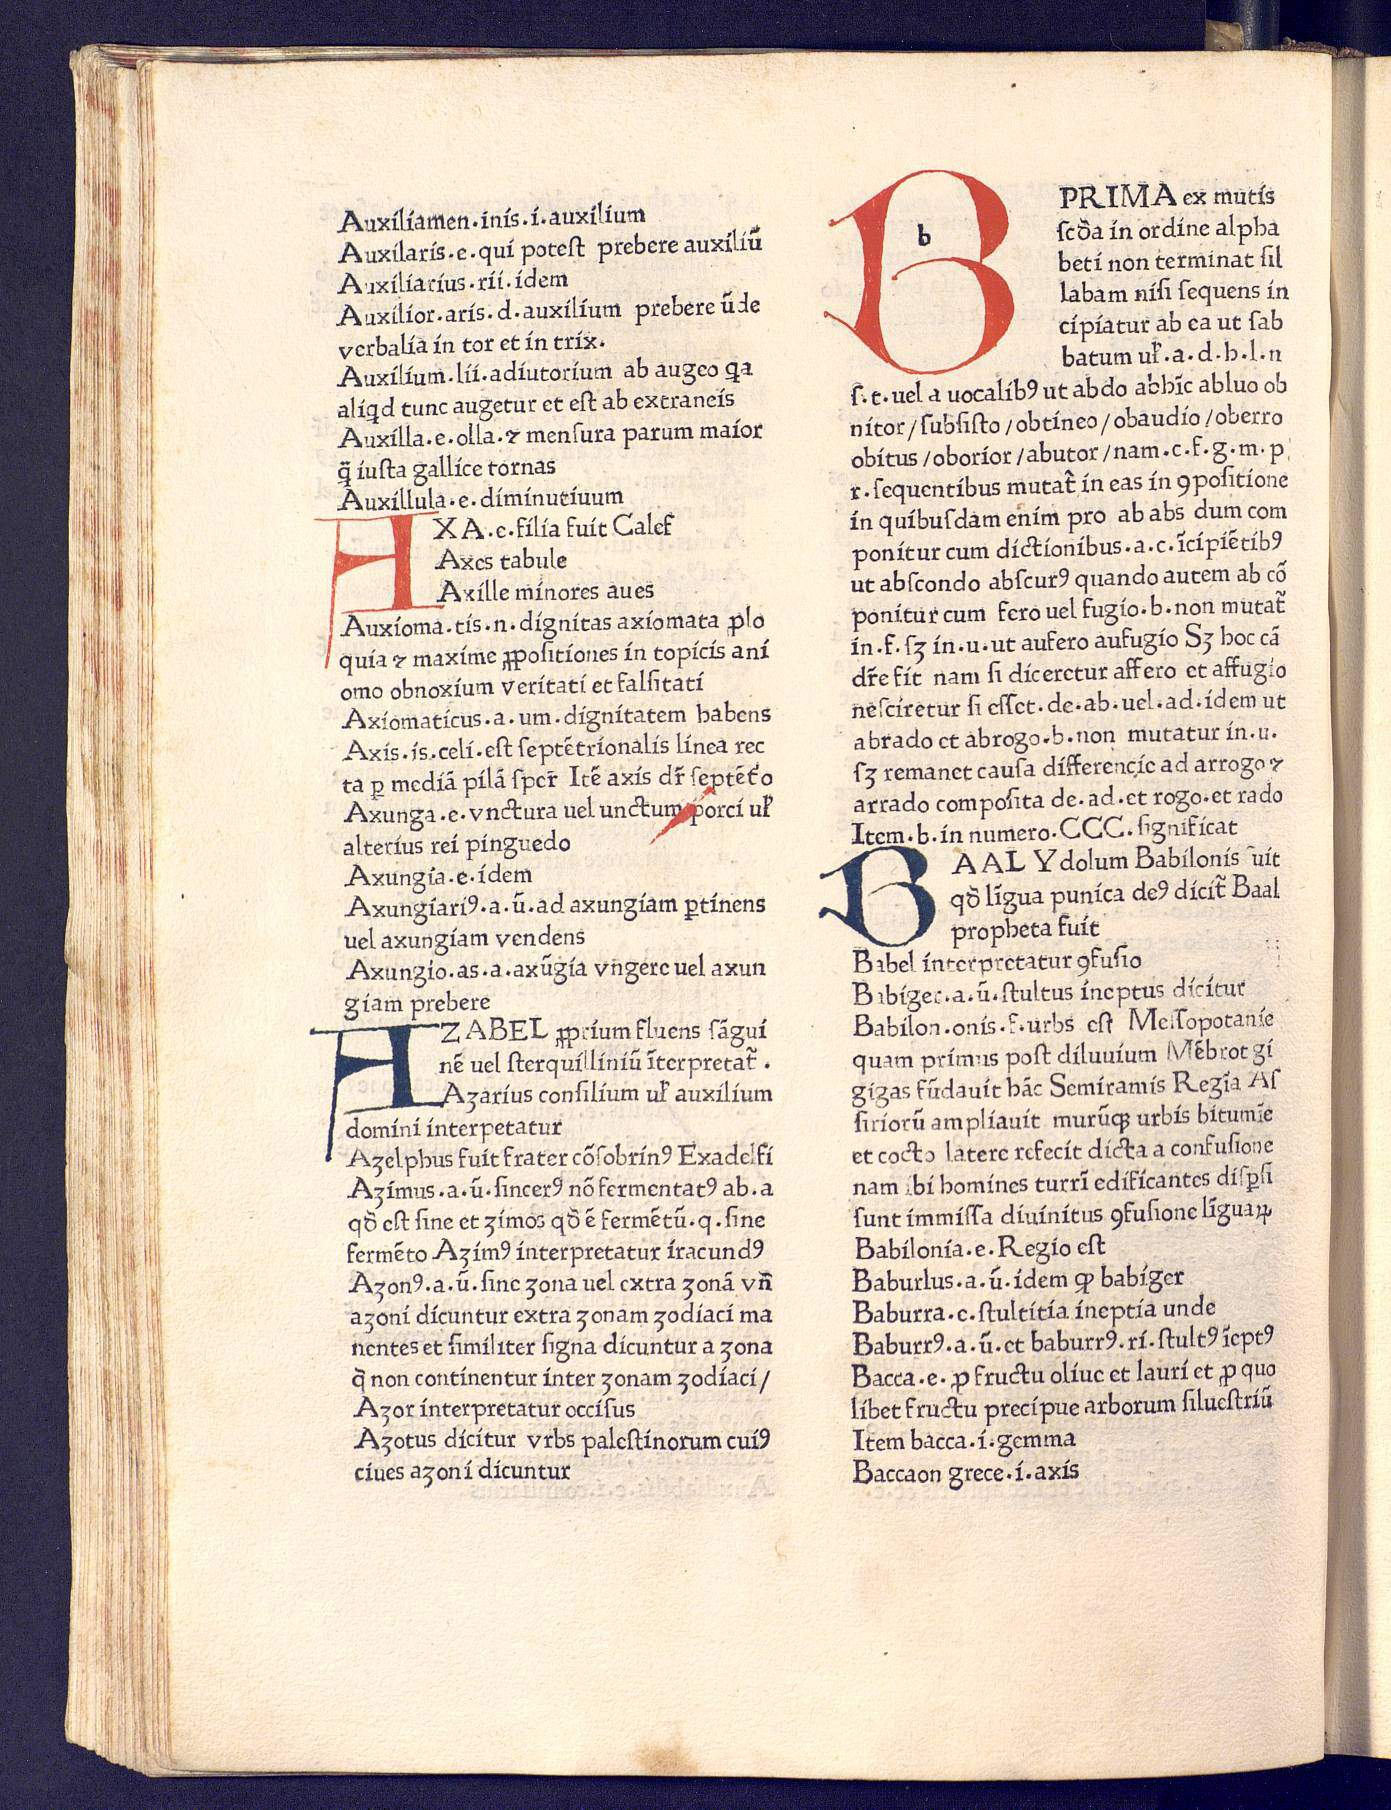 Auxiliamen.inis.i.auxilium
Auxilaris.e.qui potest prebere auxiliū
Auxiliarius.rii.idem
Auxilior.aris.d.auxilium prebere ūde
verbalia in tor et in trix.
Auxilium.lii.adiutorium ab augeo qa
aliqd tunc augetur et est ab extraneis
Auxilla.e.olla.⁊ mensura parum maior
q̄ iusta gallice tornas
Auxillula.e.diminutiuum
AXA.e.filia fuit Calef
Axes tabule
Axille minores aues
Auxioma.tis.n.dignitas axiomata ꝓlo
quia ⁊ maxime ꝓpositiones in topicis ani
omo obnoxium veritati et falsitati
Axiomaticus.a.um.dignitatem habens
Axis.is.celi.est septētrionalis linea rec
ta ꝑ mediā pilā sper̄ Itē axis dr̄ septēt̓o
Axunga.e.vnctura uel unctum porci ul̓
alterius rei pinguedo
Axungia.e.idem
Axungiariꝰ.a.ū.ad axungiam ꝑtinens
uel axungiam vendens
Axungio.as.a.axūgia vngere uel axun
giam prebere
AZABEL ꝓprium fluens sāgui
nē uel sterquilliniū īterpretat̄.
Azarius consilium ul̓ auxilium
domini interpetatur
Azelphus fuit frater cōsobrinꝰ Exadelfi
Azimus.a.ū.sincerꝰ nō fermentatꝰ ab.a
qð est sine et zimos qð ē fermētū.q.sine
fermēto Azimꝰ interpretatur iracundꝰ
Azonꝰ.a.ū.sine zona uel extra zonā vn̄
azoni dicuntur extra zonam zodiaci ma
nentes et similiter signa dicuntur a zona
q̄ non continentur inter zonam zodiaci/
Azor interpretatur occisus
Azotus dicitur vrbs palestinorum cuiꝰ
ciues azoni dicuntur
b
B PRIMA ex mutis
scða in ordine alpha
beti non terminat sil
labam nisi sequens in
cipiatur ab ea ut sab
batum ul̓.a.d.b.l.n
s.t.uel a uocalibꝰ ut abdo abhīc abluo ob
nitor/subsisto/obtineo/obaudio/oberro
obitus/oborior/abutor/nam.c.f.g.m.p
r.sequentibus mutat̄ in eas in ꝯpositione
in quibusdam enim pro ab abs dum com
ponitur cum dictionibus.a.c.īcipiētibꝰ
ut abscondo abscurꝰ quando autem ab cō
ponitur cum fero uel fugio.b.non mutat̄
in.f.sꝫ in.u.ut aufero aufugio Sꝫ hoc cā
dr̄e fit nam si diceretur affero et affugio
nesciretur si esset.de.ab.uel.ad.idem ut
abrado et abrogo.b.non mutatur in.u.
sꝫ remanet causa differencie ad arrogo ⁊
arrado composita de.ad.et rogo.et rado
Item.b.in numero.CCC.significat
BAAL Ydolum Babilonis fuit
qð līgua punica deꝰ dicit̄ Baal
propheta fuit
Babel interpretatur ꝯfusio
Babiger.a.ū.stultus ineptus dicitur
Babilon.onis.f.urbs est Messopotanie
quam primus post diluuium Mēbrot gi
gigas fūdauit hāc Semiramis Regīa As
siriorū ampliauit murūqꝫ urbis bitumīe
et cocto latere refecit dicta a confusione
nam ibi homines turrī edificantes disꝑsi
sunt immissa diuinitus ꝯfusione līguaꝝ
Babilonia.e.Regio est
Baburlus.a.ū.idem qꝫ babiger
Baburra.e.stultitia ineptia unde
Baburrꝰ.a.ū.et baburrꝰ.ri.stultꝰ īeptꝰ
Bacca.e.ꝓ fructu oliue et lauri et ꝓ quo
libet fructu precipue arborum siluestriū
Item bacca.i.gemma
Baccaon grece.i.axis